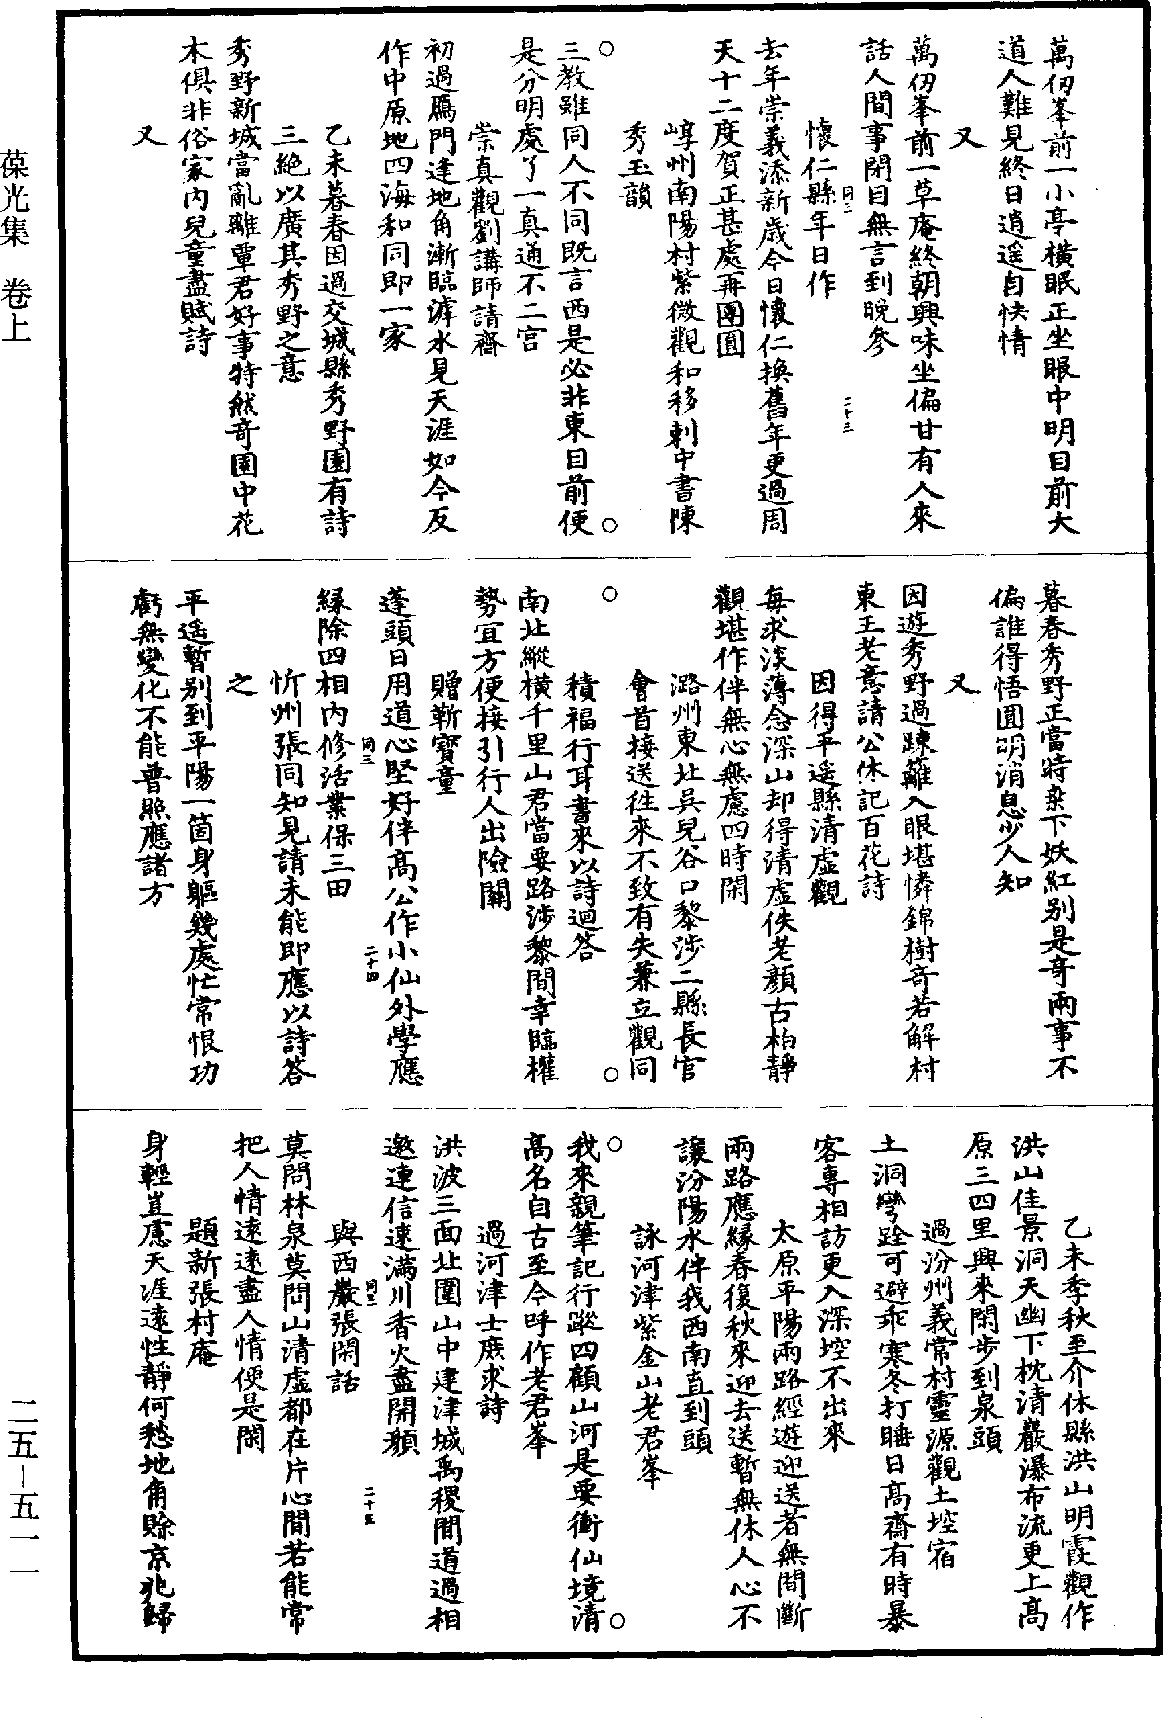 萬仞峯前一小亭橫眠正坐眼中明目前大
道人難見終日逍遥自快情
又
萬仞峯前一草庵終朝興味坐偏甘有人來
話人間事閉目無言到晚參
懷仁縣年日作
同二
二十三
去年崇義添新歲今日懷仁換舊年更過周
天十二度賀正甚處再團圓
崞州南陽村紫微觀和移剌中書陳
秀玉韻
三教雖同人不同既言西是必非東目前便
是分明處了一真通不二宫
崇真觀劉講師請齋
初過鴈門逢地角漸臨滹水見天涯如今反
作中原地四海和同即一家
乙未暮春因過交城縣秀野園有詩
三絶以廣其秀野之意
秀野新城當亂離覃君好事特然奇園中花
木俱非俗家内兒童盡賦詩
又
暮春秀野正當時桒下妖紅别是奇兩事不
偏誰得悟圓明消息少人知
又
因遊秀野過踈籬入眼堪憐錦樹奇若解村
東王老意請公休記百花詩
因得平遥縣清虚觀
每求淡薄念深山却得清虚佚老顔古柏靜
觀堪作伴無心無慮四時閑
潞州東北吳兒谷口黎涉二縣長官
會首接送徃來不致有失兼立觀同
積福行耳書來以詩迴答
南北縱橫千里山君當要路涉黎間幸臨權
勢宜方便接引行人出險關
贈靳寶童
蓬頭日用道心堅好伴髙公作小仙外學應
同三
二十四
緑除四相内修活業保三田
忻州張同知見請未能即應以詩答
之
平遥暫别到平陽一箇身軀幾處忙常恨功
虧無變化不能普照應諸方
乙未季秋至介休縣洪山明霞觀作
洪山佳景洞天幽下枕清巖瀑布流更上髙
原三四里興來閑步到泉頭
過汾州義常村靈源觀土埪宿
土洞彎跧可避乖寒冬打睡日髙齋有時暴
客專相訪更入深埪不出來
太原平陽兩路經遊迎送者無間斷
兩路應縁春復秋來迎去送暫無休人心不
讓汾陽水伴我西南直到頭
詠河津紫金山老君峯
我來親筆記行蹤四顧山河是要衝仙境清
髙名自古至今呼作老君峯
過河津士庶求詩
洪波三面北圍山中建津城禹稷間道過相
邀連信逺滿川香火盡開顔
同三
二十五
與西巖張閑話
莫問林泉莫問山清虚都在片心間若能常
把人情逺逺盡人情便是閑
題新張村庵
身輕豈慮天涯逺性靜何愁地角賖京兆歸
葆光集 卷上
二五-五一一